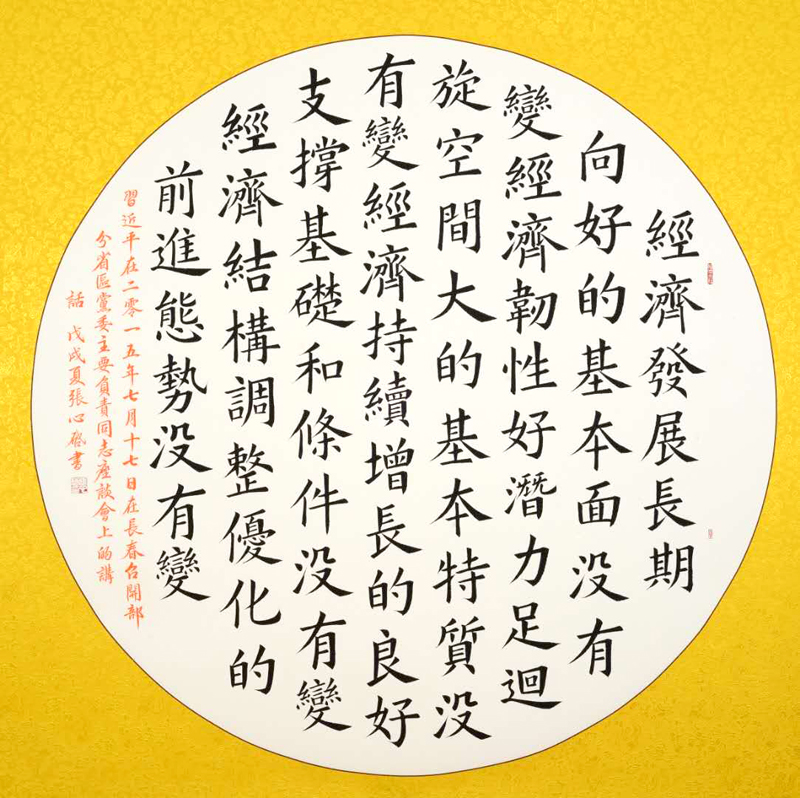 經濟發展長期
向好的基本面没有
變經濟韌性好潛力足迴
旋空間大的基本特質没
有變經濟持續增長的良好
支撐基礎和條件没有變
經濟結構調整優化的
前進態勢没有變
習近平在二零一五年七月十七日在長春召開部
分省區黨委主要負責同志座談會上的講
話 戊戌夏張心 書